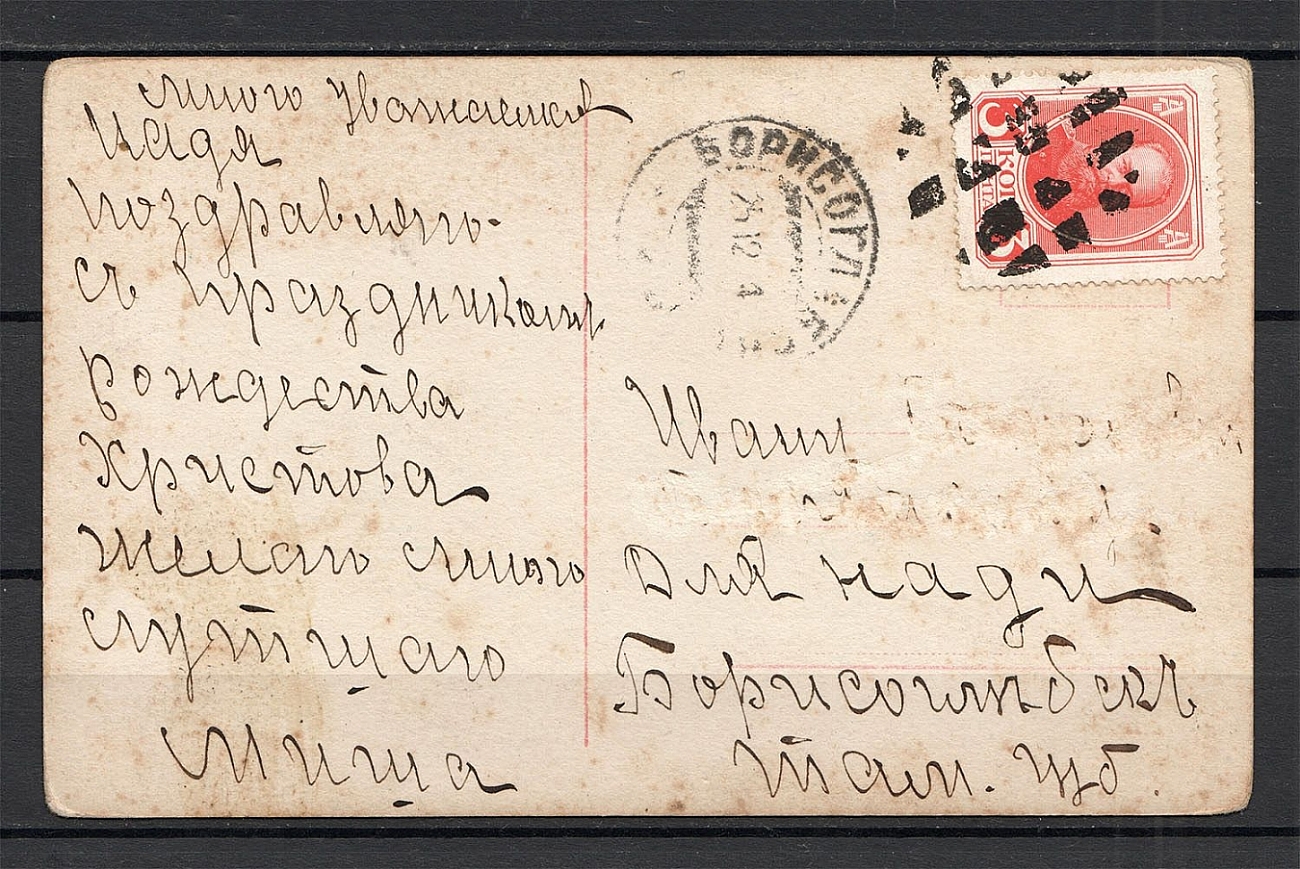 много уважаемая
Надя
поздравляю
съ праздникомъ
рождества
Христова
желаю много
лутшаго
Миша
БОРИСОГЛѢБСК
25.12.1
3 КОП 3
Ивану
для нади
Борисоглѣбскъ
там. губ.